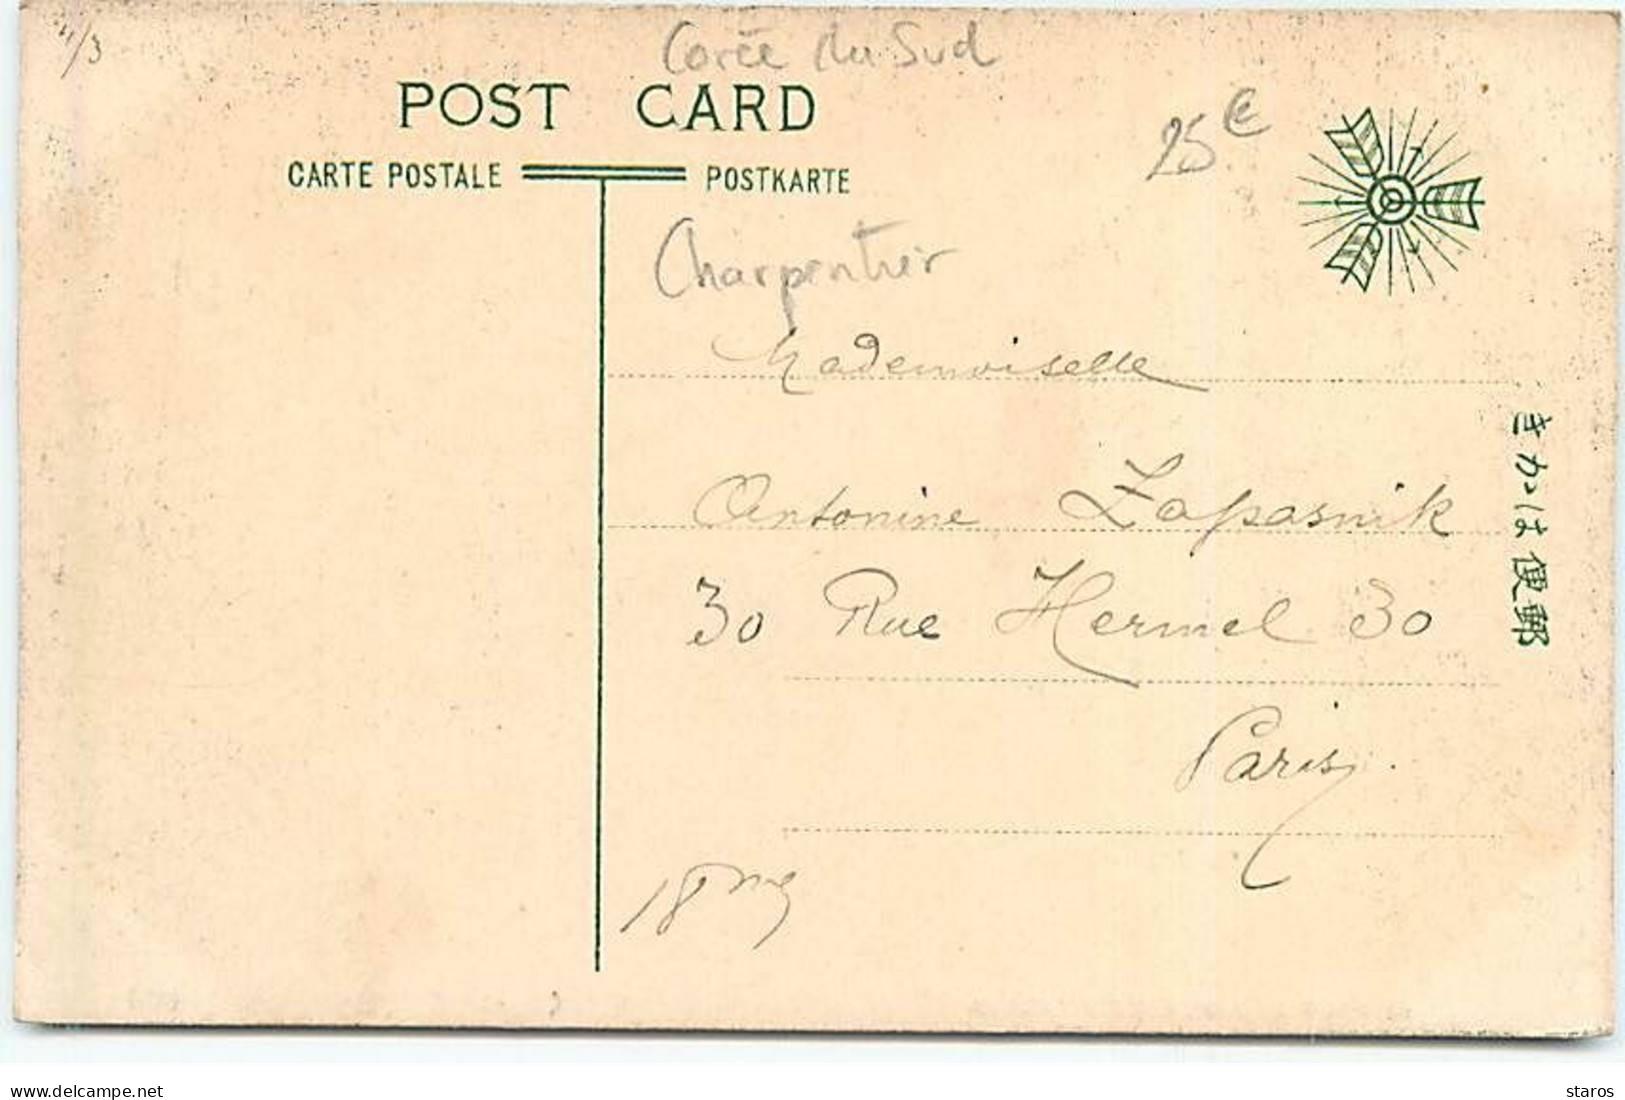 4/3
Corée du Sud
POST CARD
25€
CARTE POSTALE POSTKARTE
Charpentier
Mademoiselle
Antonine Zapasnik
30 Rue Hermel 30
Paris.
18me
きかは便郵
delcampe.net
staros